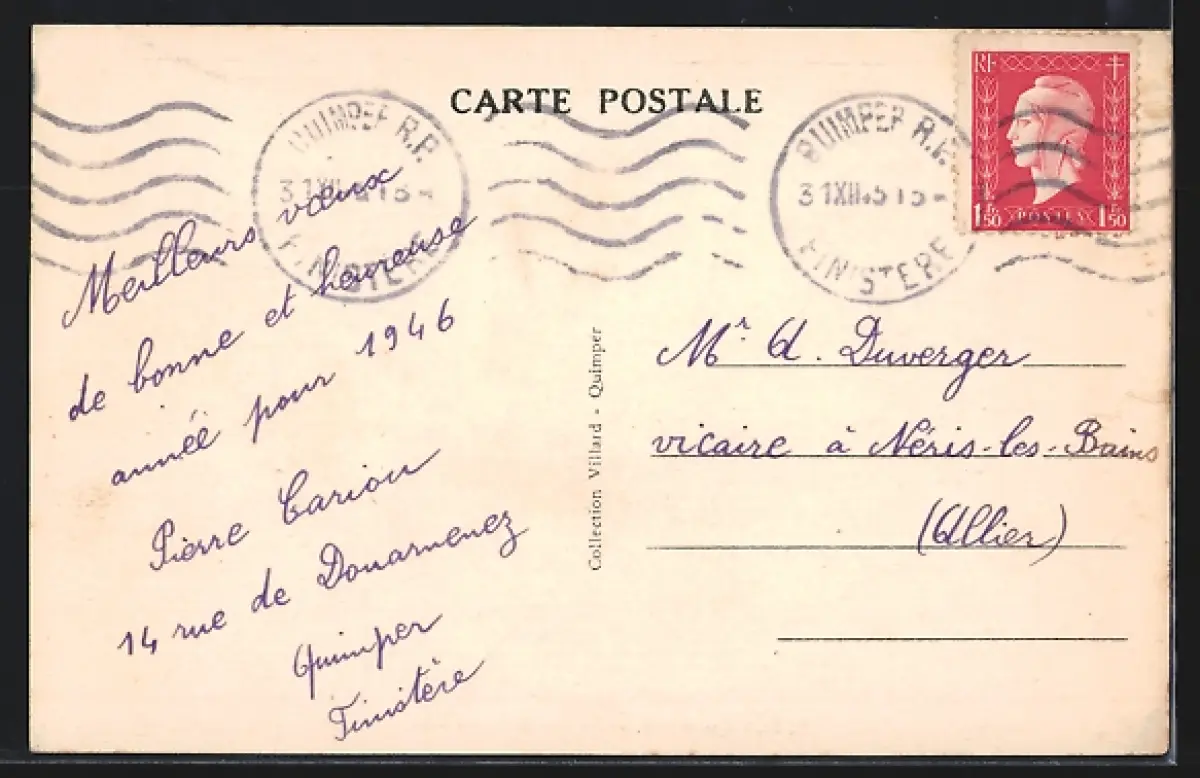 CARTE POSTALE
QUIMPER R.P.
FINISTERE
QUIMPER R.P.
31XII45 15
FINISTERE
RF
1F50 POSTES 1F50
Meilleurs vœux
de bonne et heureuse
année pour 1946
Pierre Cariou
14 rue de Douarnenez
Quimper
Finistère
Collection Villard - Quimper
Mr A. Duverger
vicaire à Néris-les-Bains
(Allier)